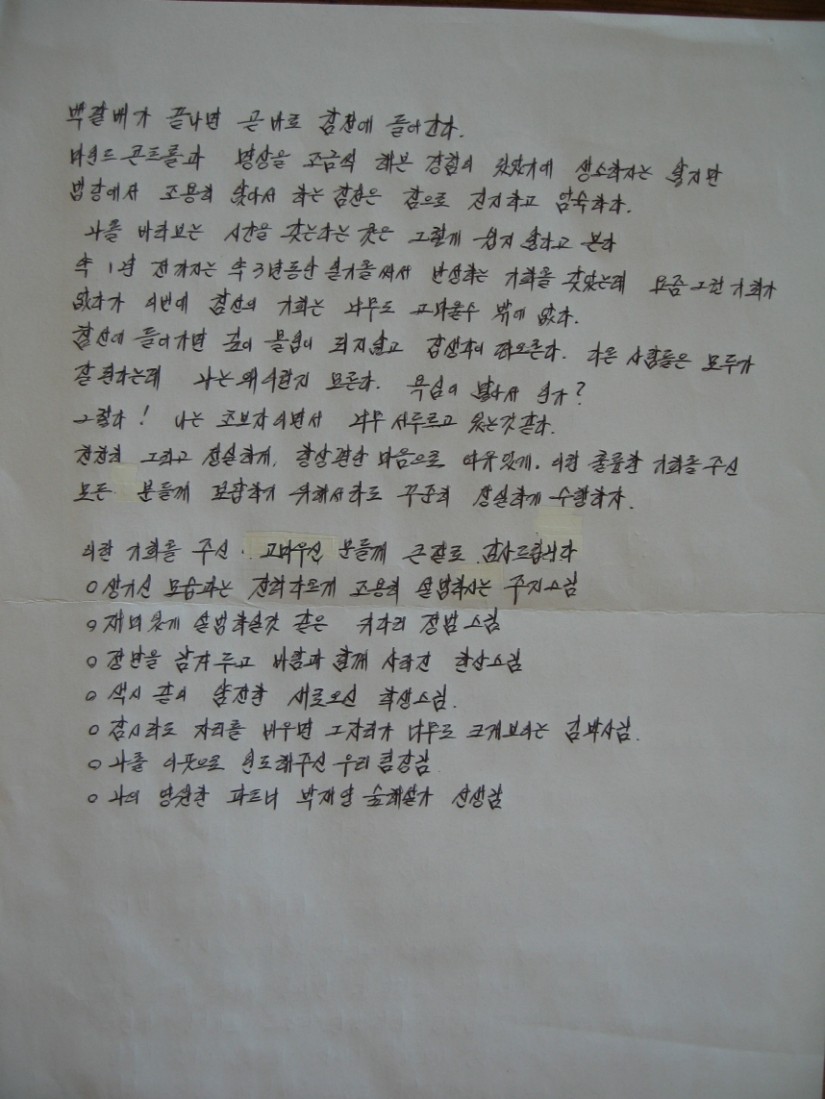 백팔배가 끝나면 곧 바로 참선에 들어간다.
마인드 콘트롤과 명상을 조금씩 해본 경험이 있었기에 생소하지는 않지만
법당에서 조용히 앉아서 하는 참선은 참으로 진지하고 엄숙하다.
나를 바라보는 시간을 갖는다는 것은 그렇게 쉽지 않다고 본다
약 1년 전까지는 약 3년동안 일기를 써서 반성하는 기회를 갖었는데 요즘 그런 기회가
없다가 이번에 참선의 기회는 너무도 고마울수 밖에 없다.
참선에 들어가면 깊이 몰입이 되지않고 잡생각이 떠오른다. 다른 사람들은 모두가
잘 된다는데 나는 왜 이런지 모른다. 욕심이 많아서 인가?
그렇다! 나는 초보자이면서 너무 서두르고 있는것 같다.
천천히 그리고 성실하게, 항상 편안 마음으로 여유있게. 이런 훌륭한 기회를 주신
모든 분들께 보답하기 위해서라도 꾸준히 성실하게 수행하자.
이런 기회를 주신 고마우신 분들께 큰절로 감사드립니다
○ 생기신 모습과는 전혀 다르게 조용히 설법하시는 주지스님
○ 재미있게 설법하실것 같은 키다리 정범스님
○ 정만을 남겨두고 바람과 함께 사라진 현산스님
○ 색시 같이 얌전한 새로오신 학생스님.
○ 잠시라도 자리를 비우면 그자리가 너무도 크게보이는 김박사님.
○ 나를 이곳으로 인도해주신 우리 팀장님
○ 나의 영원한 파트너 박재영 숲해설가 선생님